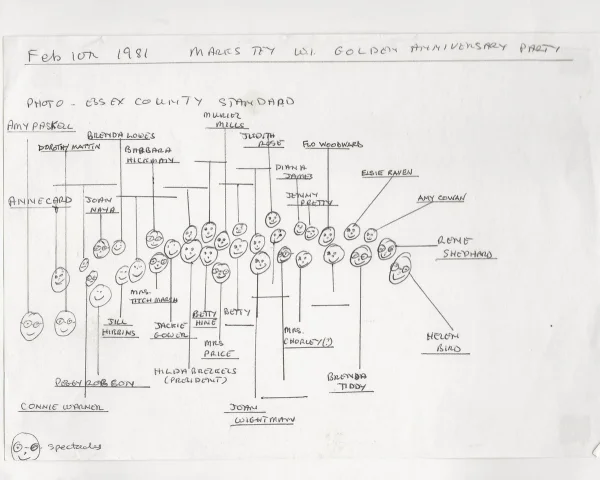 Feb 10th 1981 MARKS TEY W.I. GOLDEN ANNIVERSARY PARTY
PHOTO - ESSEX COUNTY STANDARD
MURIEL
MILLS
AMY PASKELL
BRENDA LOWES
JUDITH
ROSE
DOROTHY MARTIN
BARBARA
HICKMAN
FLO WOODWARD
DIANA
JAMES
ELSIE RAVEN
ANNE CARD
JOAN
NAYA
JENNY
PRETTY
AMY COWAN
RENE
SHEPHARD
MRS.
TITCHMARSH
JILL
HIBBINS
JACKIE
GOWER
BETTY
HINE
BETTY
MRS
PRICE
MRS.
CHORLEY(?)
HELEN
BIRD
HILDA
(PRESIDENT)
BRENDA
TIDDY
PEGGY ROBSON
CONNIE WARNER
JOAN
WIGHTMAN
- spectacles